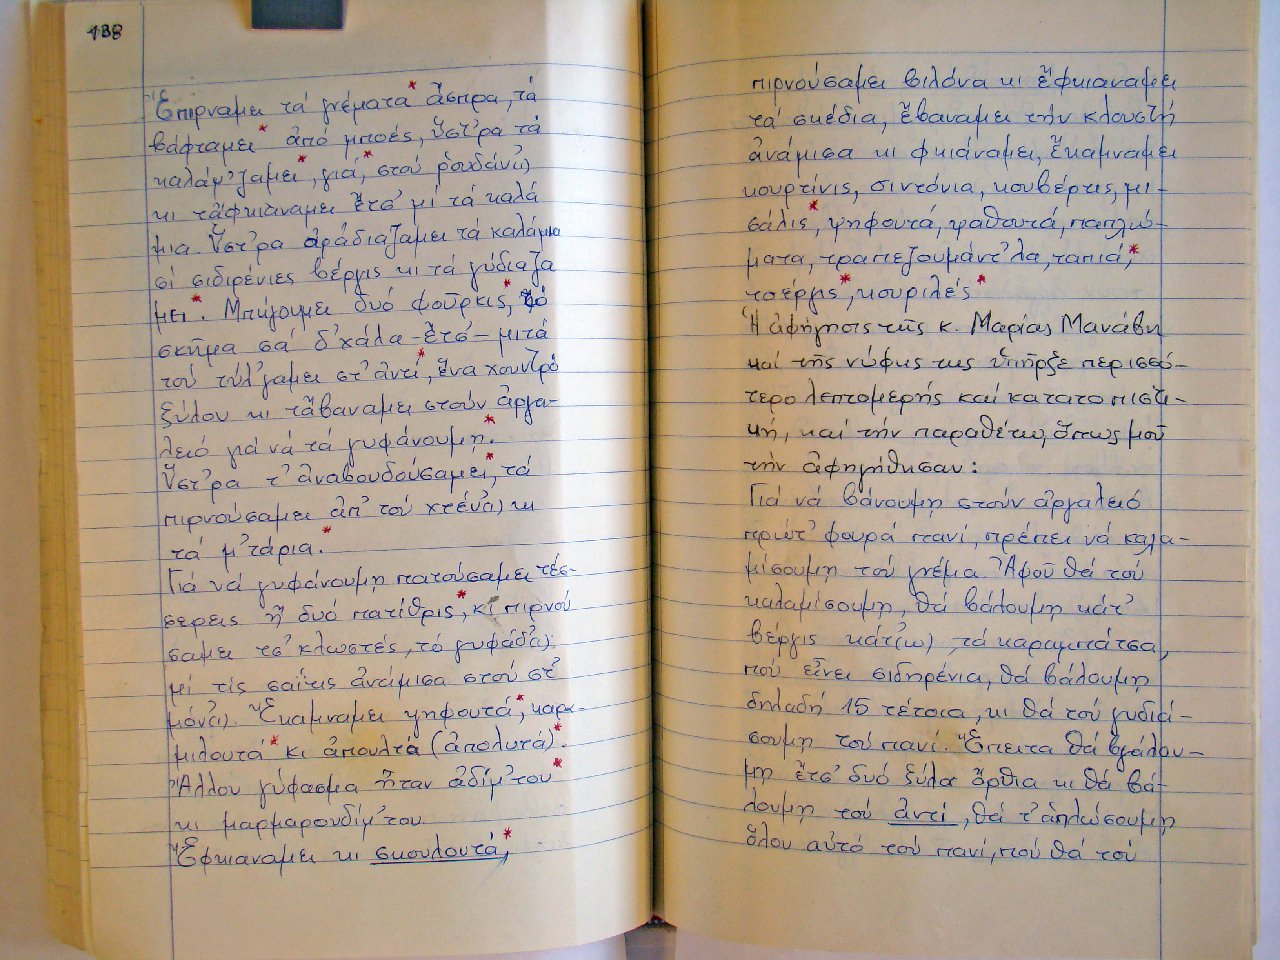 138
Ἔπιρναμει τά γνέματα* ἄσπρα, τά
βάφταμει* ἀπό μποές, ὕστ'ρα τά
καλάμ'ζαμει*, γιά*, στού ρουδάν(ι)
κι τἄφκιαναμει ἔτσ' μί τά καλά
μια. Ὕστ'ρα ἀράδιαζαμει τά καλάμια
σί σιδιρένιες βέργις κι τά γύδιαζα
μει*. Μπήγουμει δυό φοῦρκις*, τό
σκῆμα σά δ'χάλα - ἔτσ' - μιτά
τού τύλ'γαμει στ' ἀντί*, ἕνα χουντρό
ξύλου κι τἄβαναμει στούν ἀργα-
λειό γιά νά τά γυφάνουμη*.
Ὕστ'ρα τ' ἀναβουδούσαμει*, τά
πιρνούσαμει ἀπ' τού χτέν(ι) κι
τά μ'τάρια*.
Γιά νά γυφάνουμη πατούσαμει τέσ-
σερεις ἤ δυό πατίθρις*, κί πιρνού
σαμει τσ' κλωστές, τό γυφάδ(ι)
μί τίς σαΐτις ἀνάμισα στού στ'
μόν(ι). Ἔκαμναμει ψηφουτά*, καρα-
μιλουτά* κι ἀπουλτά (ἀπολυτά)*.
Ἄλλου γύφασμα ἦταν ἀδίμ'του*
κι μαρμαρουδίμ'του.
Ἔφκιαναμει κι σκουλουτά*,
πιρνούσαμει βιλόνα κι ἔφκιαναμει
τά σκέδια, ἔβαναμει τήν κλουστή
ἀνάμισα κι φκιάναμει, ἔκαμναμει
κουρτίνις, σιντόνια, κουβέρτες, μι-
σάλις*, ψηφουτά, ραθουτά, παπλώ-
ματα, τραπεζουμάντ'λα, ταπιά*,
τσέργις*, κουριλές*
Ἡ ἀφήγησις τῆς κ. Μαρίας Μανάβη
καί τῆς νύφης της ὑπῆρξε περισσό-
τερο λεπτομερής καί κατατοπιστι-
κή, καί τήν παραθέτω, ὅπως μοῦ
τήν ἀφηγήθησαν:
Γιά νά βάνουμη στούν ἀργαλειό
πρώτ' φουρά πανί, πρέπει νά καλα-
μίσουμη τού γνέμα. Ἀφοῦ θά τού
καλαμίσουμη, θά βάλουμη κάτ'
βέργις κάτ(ω), τά καραμπάτσα,
πού εἶνει σιδηρένια, θά βάλουμη
δηλαδή 15 τέτοια, κι θά τού γυδιά-
σουμη τού πανί. Ἔπειτα θά βγάλου-
μη ἔτσ' δυό ξύλα ὄρθια κι θά βά-
λουμη τού ἀντί, θά τ' ἁπλώσουμη
ὅλου αὐτό τού πανί, πού θά τού